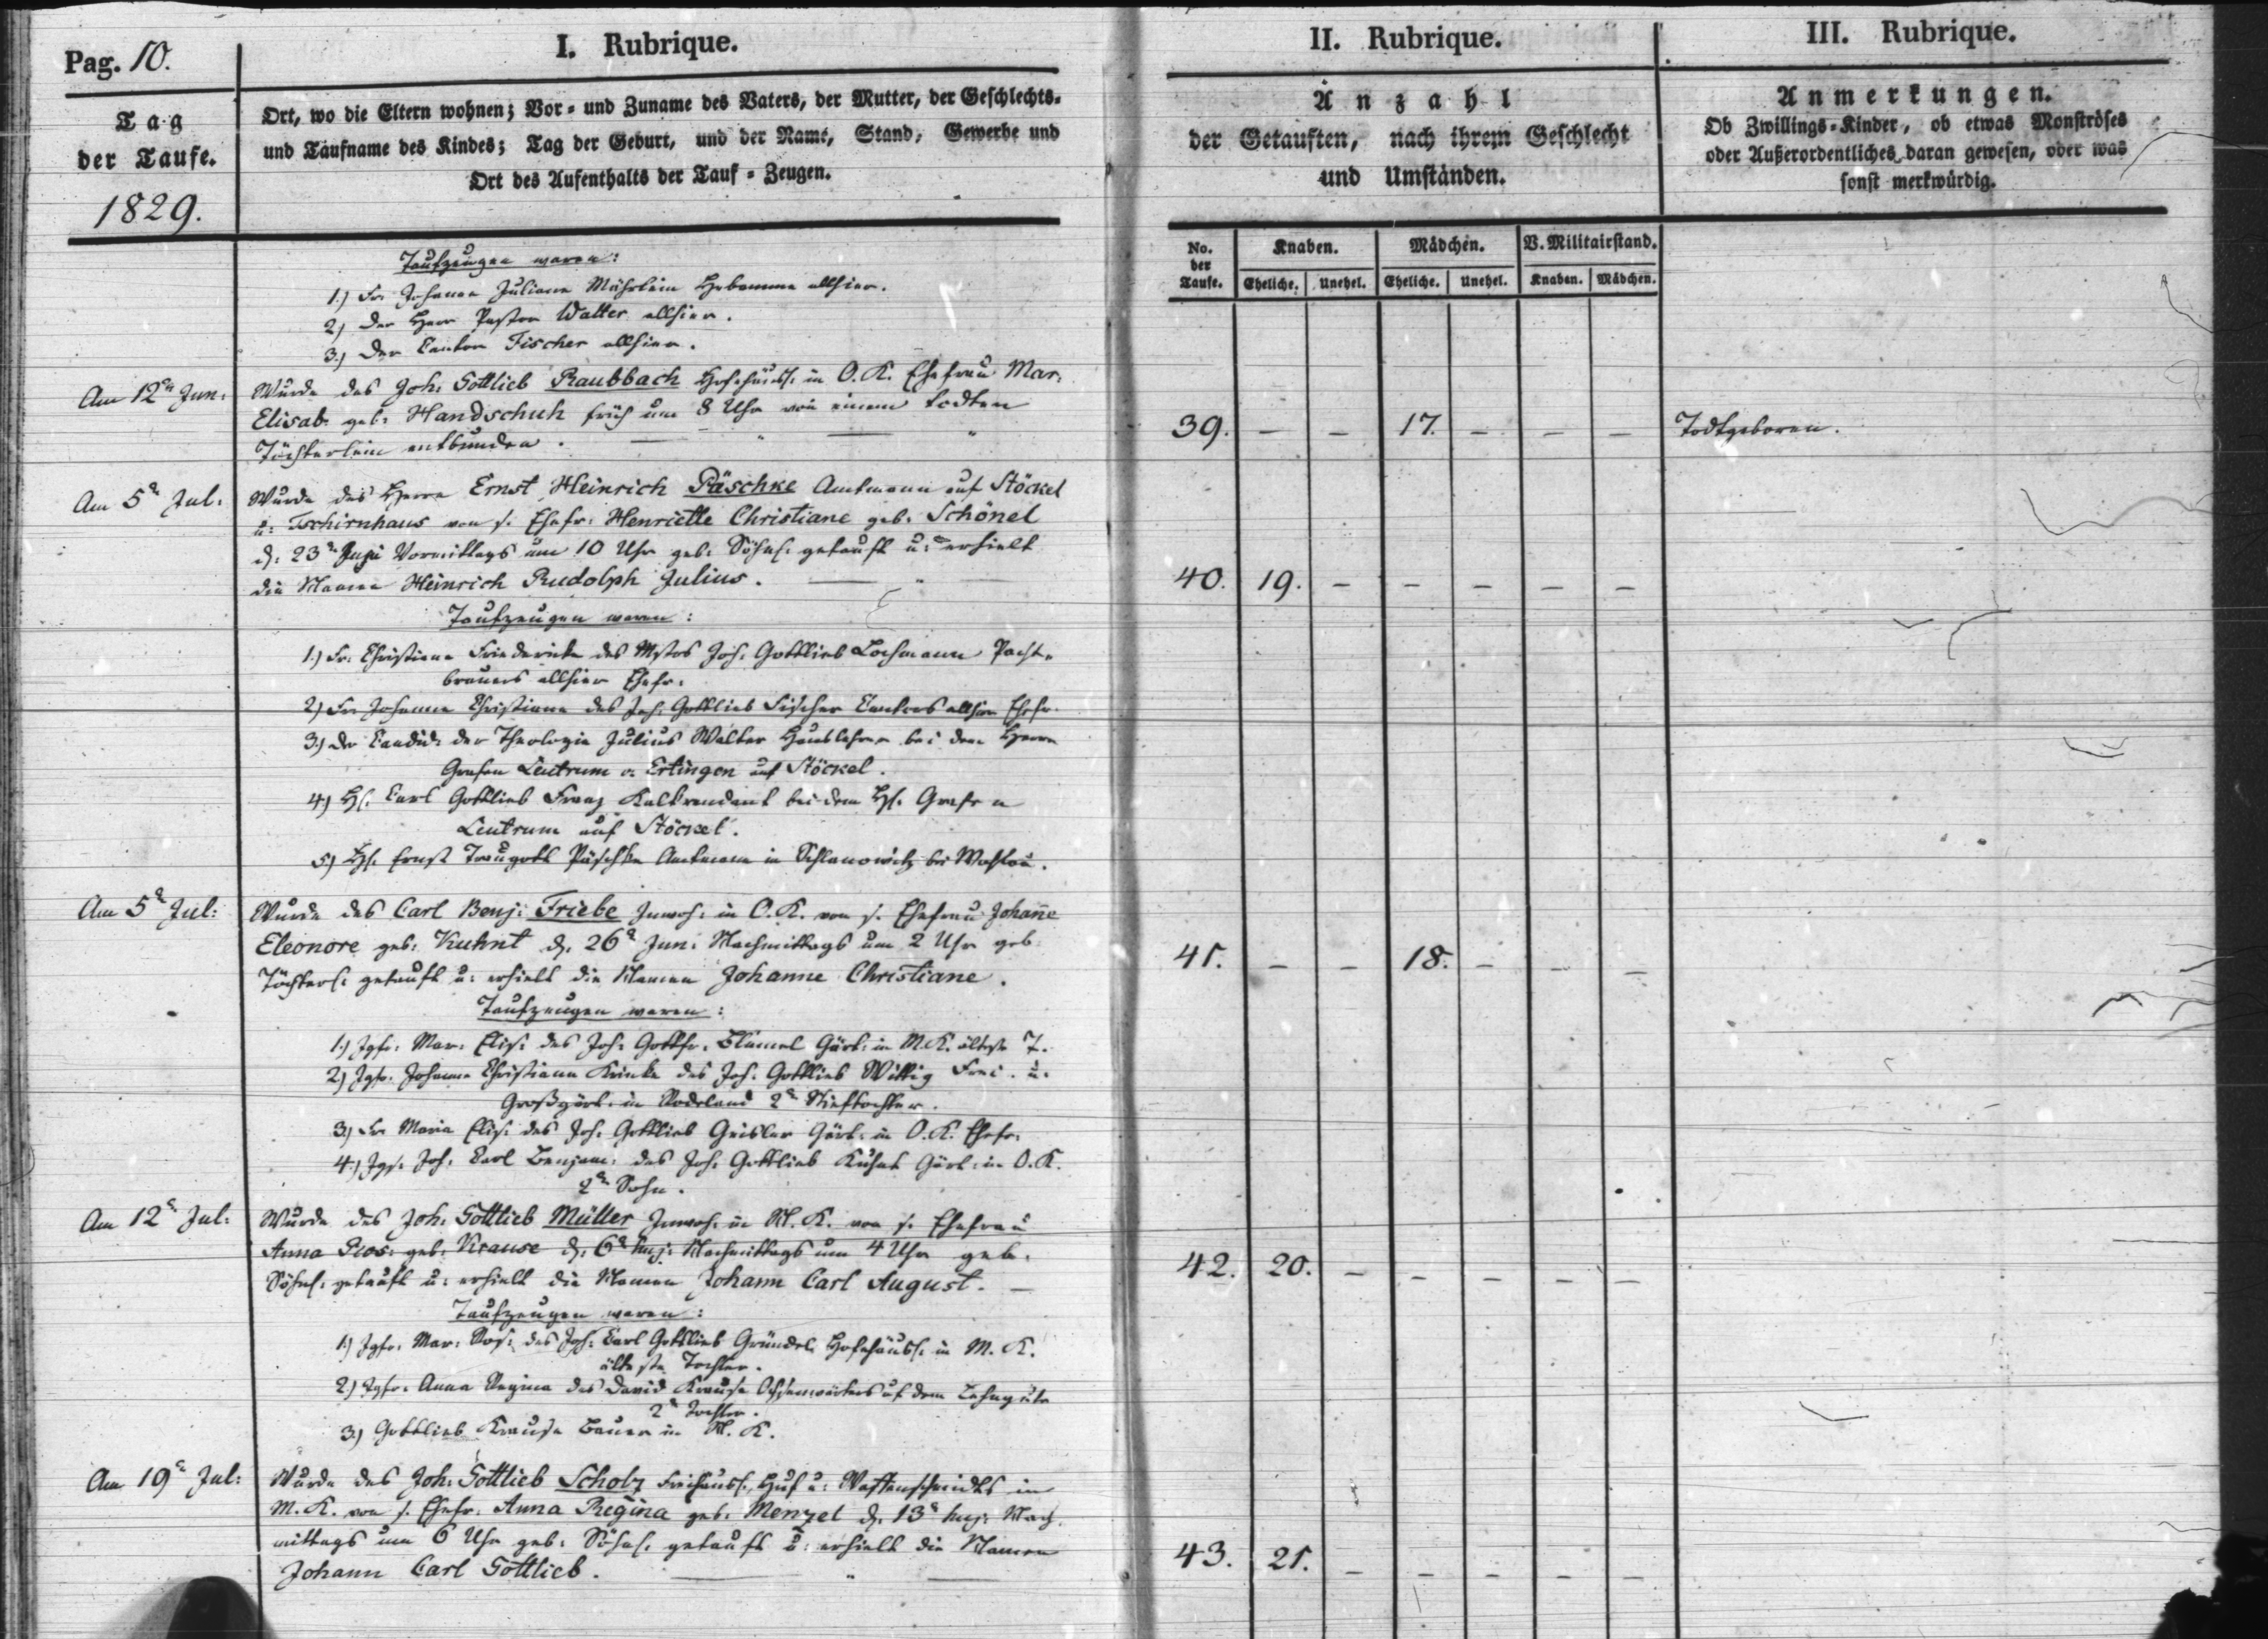 Pag. 10.
I. Rubrique.
Tag
der Taufe.
1829.
Ort, wo die Eltern wohnen; Vor- und Zuname des Vaters, der Mutter, der Geschlechts-
und Taufname des Kindes; Tag der Geburt, und der Name, Stand, Gewerbe und
Ort des Aufenthalts der Tauf-Zeugen.
Taufzeugen waren:
1.) Fr. Johanne Juliane Hebamme allhier.
2) Der Herr Pastor Walter allhier.
3.) Der Cantor Fischer allhier.
Am 12n Jun:
Wurde des Joh: Gottlieb Raubbach Hofehäusl: in O. K. Ehefrau Mar:
Elisab. geb: Handschuh früh um 8 Uhr von einem todten
Töchterlein entbunden.
Am 5n Jul:
Wurde des Herrn Ernst Heinrich Päschke Amtmann auf Stöckel
u: Tschirnhaus von s. Ehefr: Henriette Christiane geb. Schönel
d: 23n Juni Vormittags um 10 Uhr geb: Söhnl: getauft u: erhielt
die Namen Heinrich Rudolph Julius.
Taufzeugen waren:
1.) Fr. Christiane Friedericke des Mstrs Joh: Gottlieb Lochmann Pacht-
brauers allhier Ehefr:
2) Fr. Johanne Christiane des Joh: Gottlieb Fischer Cantors allhier Ehefr.
3.) Der Candid: der Theologie Julius Walter Hauslehrer bei dem Herrn
Grafen Leutrum v. Ertingen auf Stöckel.
4.) H. Carl Gottlieb Franz bei dem H. Grafen
Leutrum auf Stöckel.
5.) H. Ernst Traugott Päschke Amtmann in bei Wohlau.
Am 5n Jul:
Wurde des Carl Benj: Friebe Inwoh: in O. K. von s. Ehefrau Johan̄e
Eleonore geb: Kuhnt d. 26n Jun: Nachmittags um 2 Uhr geb:
Töchterl: getauft u: erhielt die Namen Johanne Christiane.
Taufzeugen waren:
1.) Jgfr. Mar: Elis: des Joh: Gottfr. Blümel Gärt: in M. K. älteste T.
2) Jgfr. Johanne Christiane Krinke des Joh: Gottlieb Wittig Frei- u:
Großgärt: in Rodeland 2n Stieftochter.
3.) Fr. Maria Elis: des Joh: Gottlieb Geisler Gärt: in O. K. Ehefr:
4.) Jgs. Joh: Carl Benjam: des Joh: Gottlieb Kuhnt Gärt: in O. K.
2n Sohn.
Am 12n Jul:
Wurde des Joh: Gottlieb Müller Inwoh: in N. K. von s. Ehefrau
Anna Ros: geb: Krause d. 6n huj: Nachmittags um 4 Uhr geb:
Söhnl: getauft u: erhielt die Namen Johann Carl August.
Taufzeugen waren:
1.) Jgfr. Mar: Ros: des Joh: Carl Gottlieb Gründel Hofehäusl: in M. K.
älteste Tochter.
2.) Jgfr. Anna Regina des David Krause Ochsenwärters auf dem Lehngute
2n Tochter.
3.) Gottlieb Krause Bauer in N. K.
Am 19n Jul:
Wurde des Joh: Gottlieb Scholz Freihäusl: Huf u: Waffenschmidts in
M. K. von s. Ehefr: Anna Regina geb: Menzel d. 13n huj: Nach-
mittags um 6 Uhr geb: Söhnl: getauft u: erhielt die Namen
Johann Carl Gottlieb.
II. Rubrique.
Anzahl
der Getauften, nach ihrem Geschlecht
und Umständen.
No. der Taufe. Knaben. Mädchen. V. Militairstand.
Eheliche. Unehel. Eheliche. Unehel. Knaben. Mädchen.
39. – – 17. – – –
40. 19. – – – – –
41. – – 18. – – –
42. 20. – – – – –
43. 21. – – – – –
III. Rubrique.
Anmerkungen.
Ob Zwillings-Kinder, ob etwas Monströses
oder Außerordentliches daran gewesen, oder was
sonst merkwürdig.
Todtgeboren.